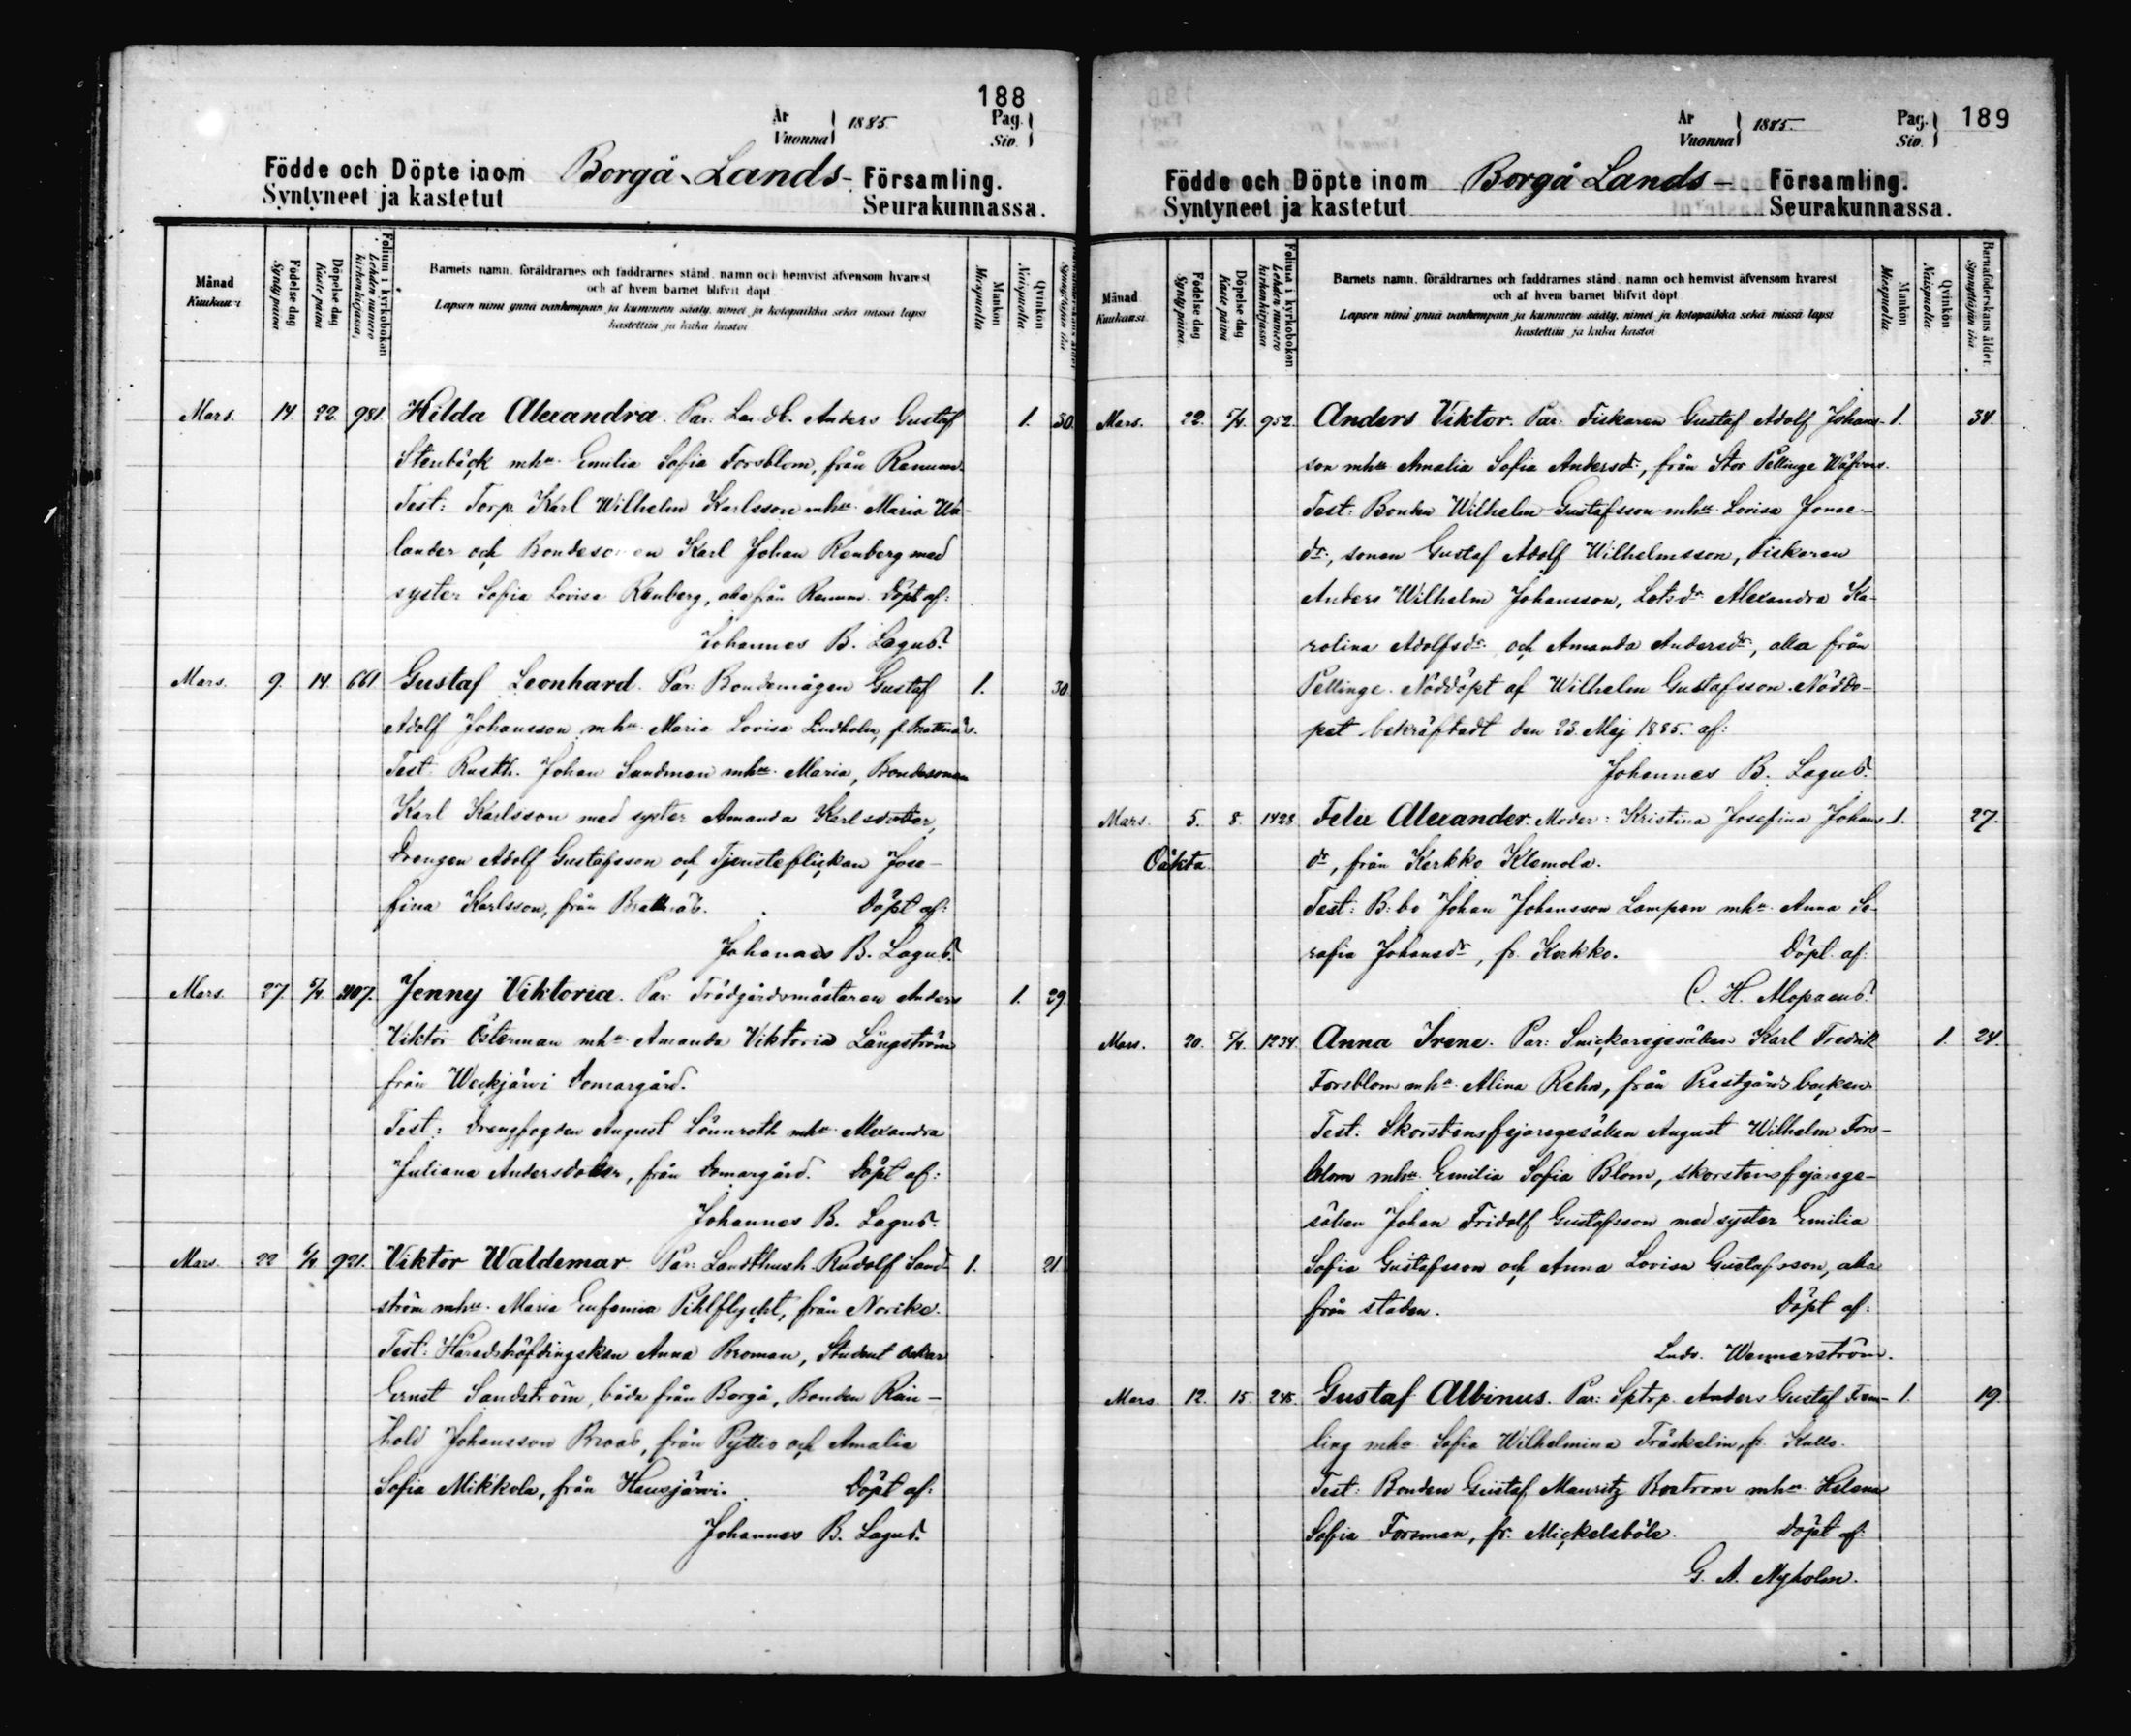 188
År
Vuonna
1885.
Pag.
Siv.
Födde och Döpte inom Borgå Lands- Församling.
Syntyneet ja kastetut Seurakunnassa.
Månad
Kuukausi
Födelse dag
Synty päivä
Döpelse dag
Kaste päivä
Folium i kyrkoboken
Lehden numero kirkonkirjassa
Barnets namn, föräldrarnes och faddrarnes stånd, namn och hemvist äfvensom hvarest
och af hvem barnet blifvit döpt
Lapsen nimi ynnä vanhempain ja kummein sääty, nimet ja kotopaikka sekä missä lapsi
kastettiin ja kuka kastoi
Mankön
Miespuolia
Qvinkön
Naispuolia
Mars. 14. 22. 981. Hilda Alexandra. Par: Landb. Anders Gustaf 1. 30.
Stenbäck mhu Emilia Sofia Forsblom, från Renum.
Test: Torp. Karl Wilhelm Karlsson mhu Maria We-
lander och Bondesonen Karl Johan Renberg med
syster Sofia Lovisa Renberg, alla från Renum. Döpt af:
Johannes B. Lagus.
Mars. 9. 14. 661 Gustaf Leonhard. Par: Bondemågen Gustaf 1. 30.
Adolf Johansson mhu Maria Lovisa Lindholm, f. Brattnäs.
Test: Rusth. Johan Sundman mhu Maria, Bondesonen
Karl Karlsson med syster Amanda Karlsdotter,
Drengen Adolf Gustafsson och Tjensteflickan Jose-
fina Karlsson, från Brattnäs. Döpt af:
Johannes B. Lagus.
Mars. 27. 5/4. Jenny Viktoria. Par: Trädgårdsmästaren Anders 1. 29.
Viktor Österman mhu Amanda Viktoria Långström
från Weckjärvi Domargård.
Test: Drengfogden August Lönnroth mhu Alexandra
Juliana Andersdotter, från Domargård. Döpt af:
Johannes B. Lagus.
Mars. 22 921. Viktor Waldemar Par: Landthush. Rudolf Sand- 1. 21
ström mhu Maria Eufemia Pihlflycht, från Norike.
Test: Häradshöfdingskan Anna Broman, Student Oskar
Ernst Sandström, båda från Borgå, Bonden Rein-
hold Johansson Broas, från Pyttis och Amalia
Sofia Mikkola, från Hausjärvi. Döpt af:
Johannes B. Lagus.
År
Vuonna
1885.
Pag.
Siv.
189
Födde och Döpte inom Borgå Lands- Församling.
Syntyneet ja kastetut Seurakunnassa.
Månad
Kuukausi
Födelse dag
Synty päivä
Döpelse dag
Kaste päivä
Folium i kyrkoboken
Lehden numero kirkonkirjassa
Barnets namn, föräldrarnes och faddrarnes stånd, namn och hemvist äfvensom hvarest
och af hvem barnet blifvit döpt
Lapsen nimi ynnä vanhempain ja kummein sääty, nimet ja kotopaikka sekä missä lapsi
kastettiin ja kuka kastoi
Mankön
Miespuolia
Qvinkön
Naispuolia
Barnaföderskans ålder
Synnyttäjän ikä
Mars. 22. 5/4. 952. Anders Viktor. Par: Fiskaren Gustaf Adolf Johans- 1. 34.
son mhu Amalia Sofia Andersdr, från Stor Pellinge
Test: Bonden Wilhelm Gustafsson mhu Lovisa Jonas-
dr, sonen Gustaf Adolf Wilhelmsson, Fiskaren
Anders Wilhelm Johansson, Lotsdr Alexandra Ka-
rolina Adolfsdr och Amanda Andersdr, alla från
Pellinge. Nöddöpt af Wilhelm Gustafsson. Nöddo-
pet bekräftadt den 23. Maj 1885. af:
Johannes B. Lagus.
Mars. 5. 8. 1428 Felix Alexander. Moder: Kristina Josefina Johans 1. 27.
Oäkta. dr, från Kerkko Klemola.
Test: B:be Johan Johansson Lampen mhu Anna Se-
rafia Johansdr, fr. Kerkko. Döpt af:
C. H. Alopaeus.
Mars. 20. 5/4. 1234. Anna Irene. Par: Snickaregesällen Karl Fredrik 1. 24.
Forsblom mhu Alina Rehn, från Prestgårdsbacken.
Test: Skorstensfejaregesällen August Wilhelm Fors-
blom mhu Emilia Sofia Blom, skorstensfejarege-
sällen Johan Fridolf Gustafsson med syster Emilia
Sofia Gustafsson och Anna Lovisa Gustafsson, alla
från staden. Döpt af:
Ludv. Wennerström.
Mars. 12. 15. 245. Gustaf Albinus. Par: Sptrp. Anders Gustaf Fram- 1. 19.
ling mhu Sofia Wilhelmina Träskelin, fr. Kullo.
Test: Bonden Gustaf Mauritz Boström mhu Helena
Sofia Forsman, fr. Mickelsböle. Döpt af:
G. A. Nyholm.